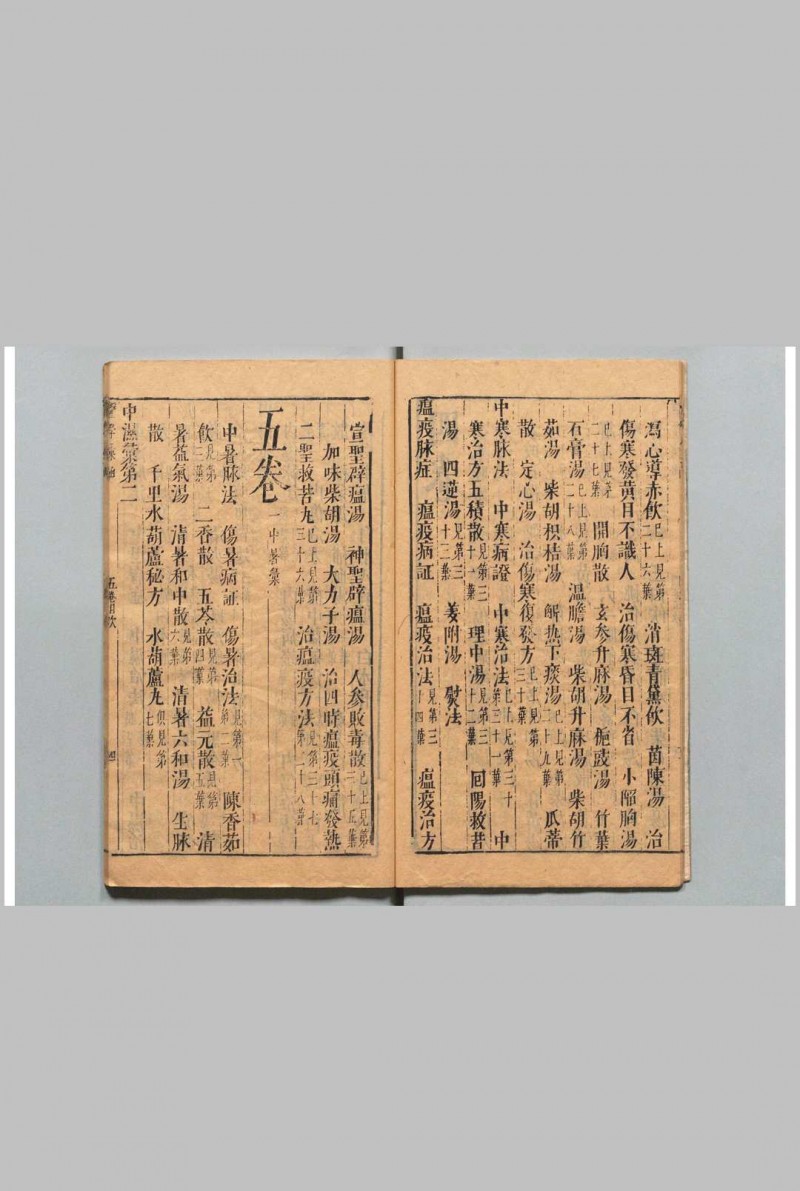 瀉心導赤飲已上見第二十六葉 消斑青黛飲 茵陳湯 治
傷寒發黃目不識人 治傷寒昏目不省 小陷胸湯
已上見第二十七葉 開胸散 玄參升麻湯 梔豉湯 竹葉
石膏湯二十八葉 溫膽湯 柴胡升麻湯 柴胡竹
茹湯 柴胡枳桔湯 解熱下痰湯已上見第二十九葉 瓜蒂
散 定心湯 治傷寒復發方已上見第三十葉
中寒脉法 中寒病證 中寒治法已上見第三十一葉 中
寒治方五積散見第三十一葉 理中湯見第三十二葉 回陽救苦
湯 四逆湯見第三十三葉 姜附湯 熨法
瘟疫脉症 瘟疫病証 瘟疫治法見第三十四葉 瘟疫治方
宣聖辟瘟湯 神聖辟瘟湯 人參敗毒散已上見第三十五葉
加味柴胡湯 大力子湯 治四時瘟疫頭痛發熱
二聖救苦丸已上見第三十六葉 治瘟疫方法見第三十七
五卷 一中暑彙
中暑脉法 傷暑病証 傷暑治法見第一第二葉 陳香茹
飲見第三葉 二香散 五苓散見第四葉 益元散見第五葉 清
暑益氣湯 清暑和中散見第六葉 清暑六和湯 生脉
散 千里水葫蘆秘方 水葫蘆丸俱見第七葉
中濕彙第二
五卷目次
四